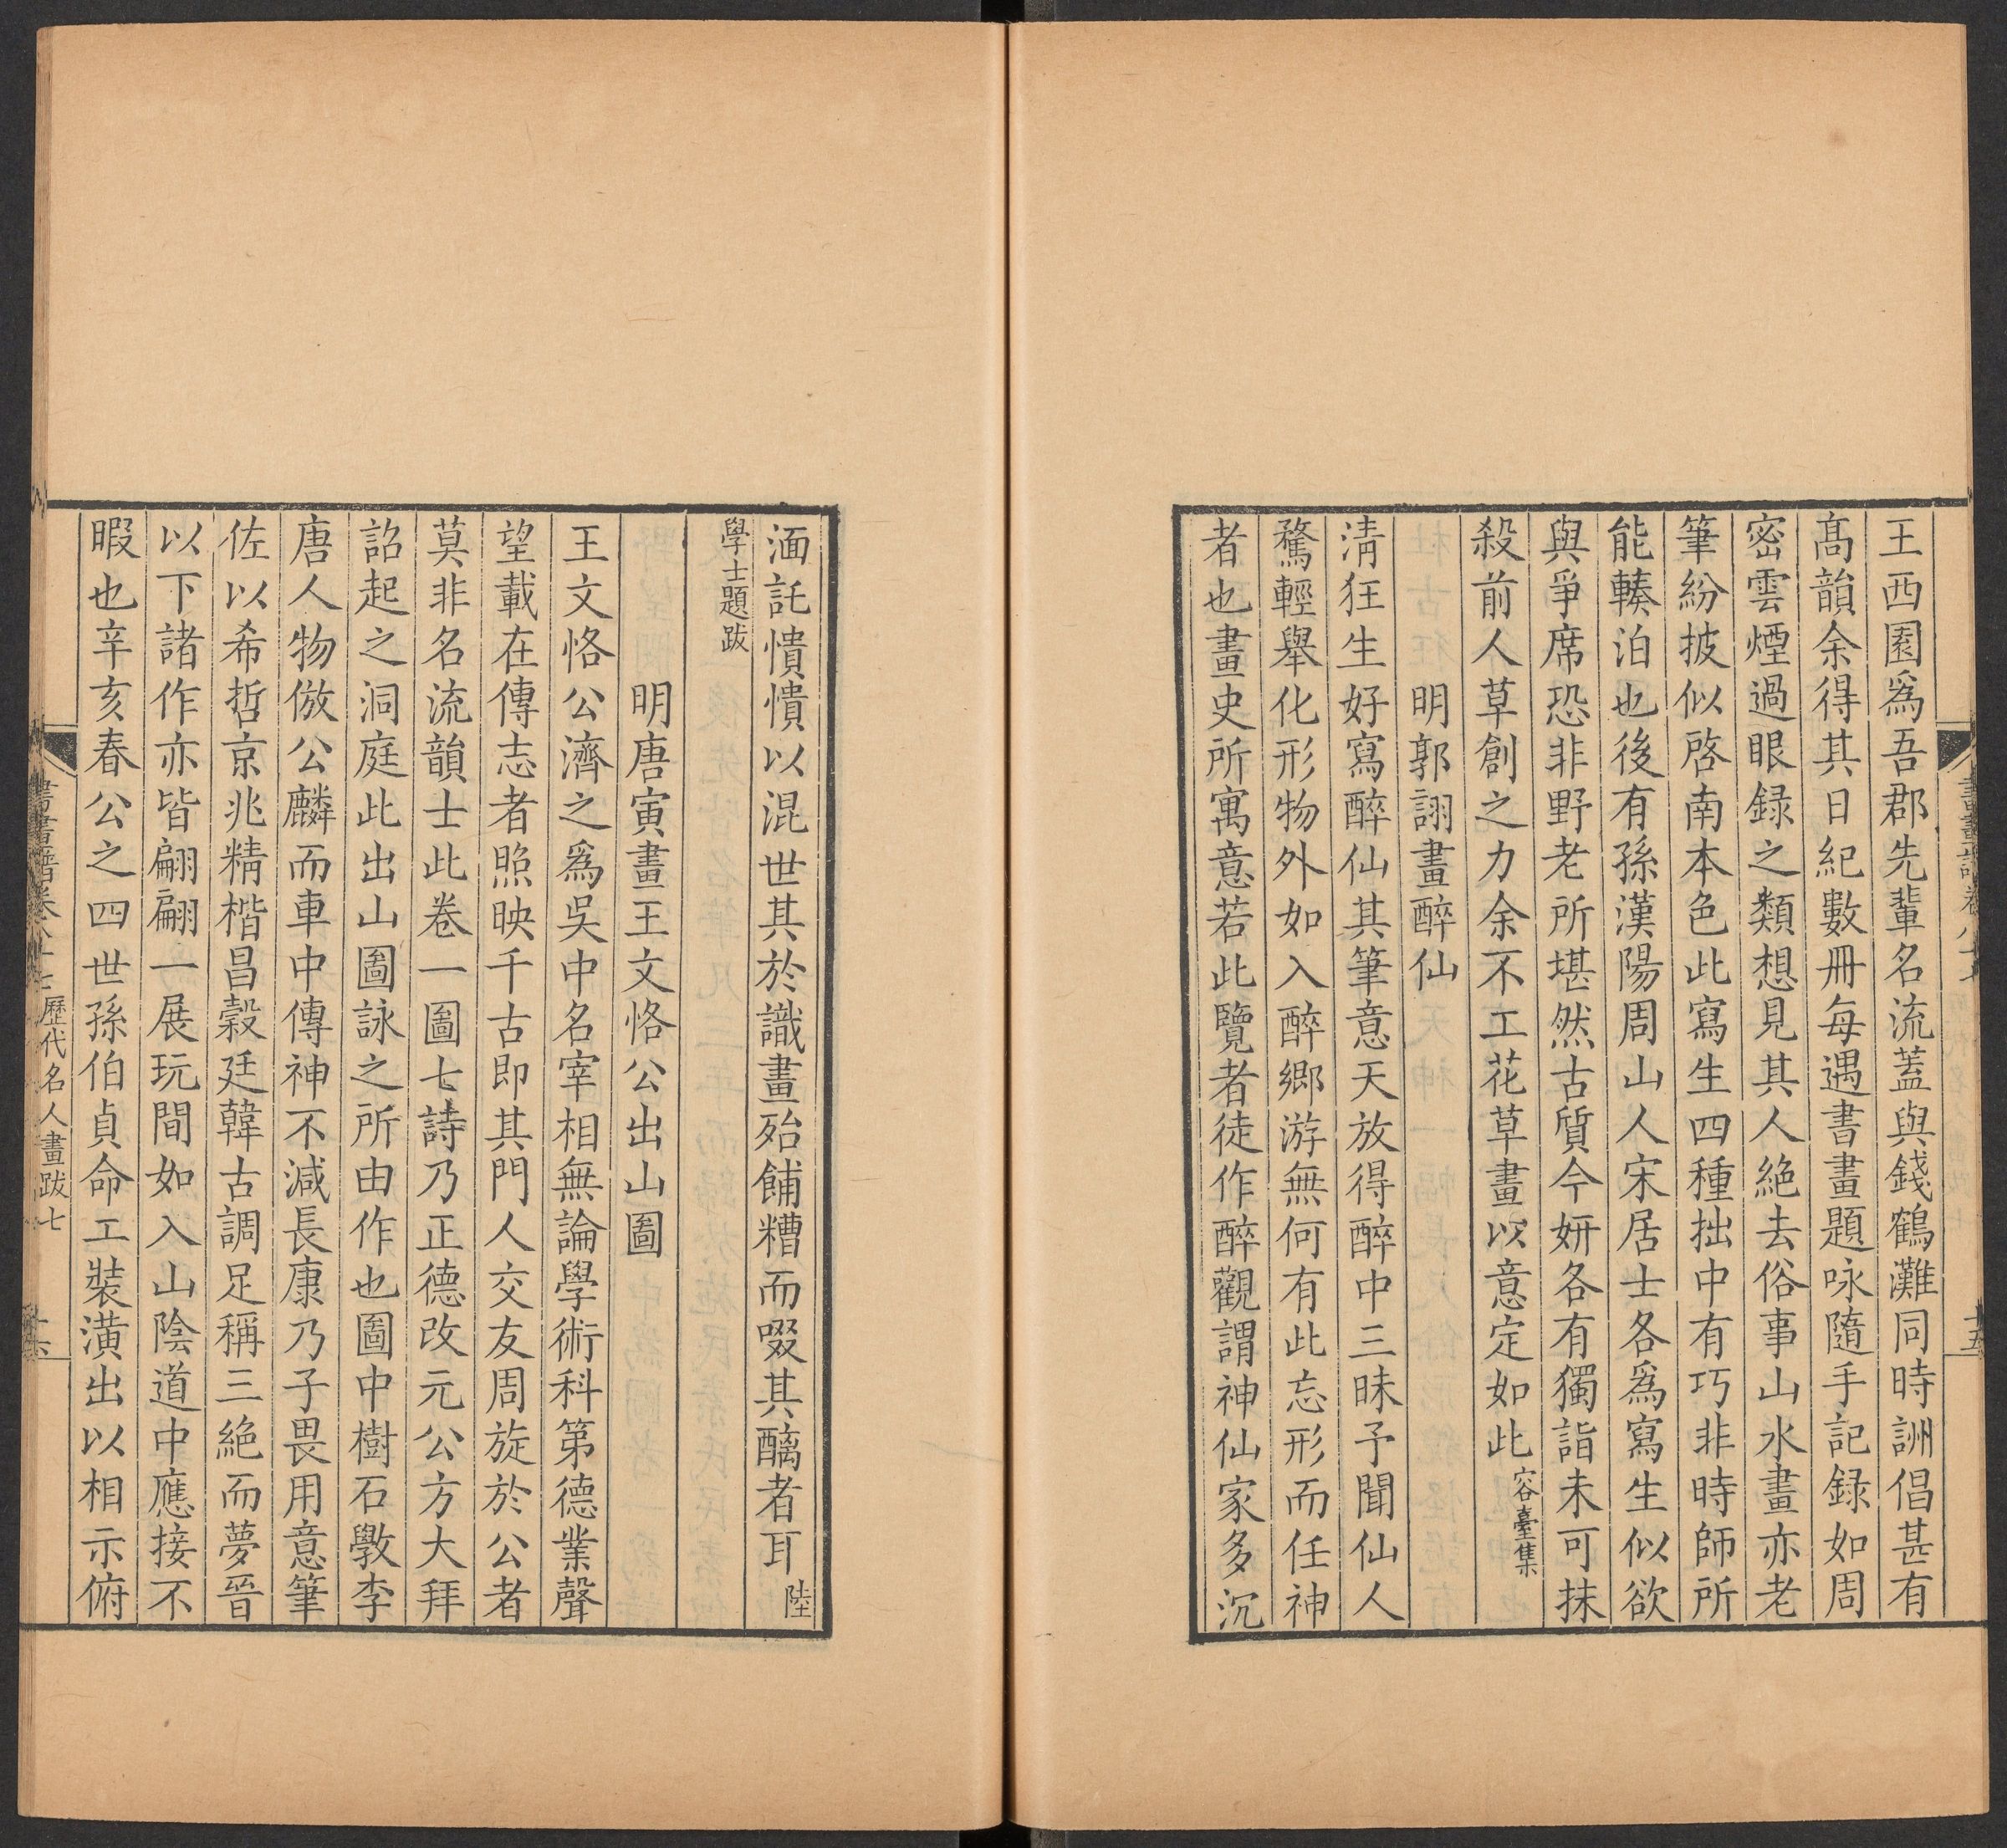 王西園爲吾郡先輩名流蓋與錢鶴灘同時詶倡甚有
髙韻余得其日紀數冊每遇書畫題咏隨手記録如周
密雲煙過眼録之類想見其人絶去俗事山水畫亦老
筆紛披似啓南本色此寫生四種拙中有巧非時師所
能輳泊也後有孫漢陽周山人宋居士各爲寫生似欲
與爭席恐非野老所堪然古質今妍各有獨詣未可抹
殺前人草創之力余不工花草畫以意定如此容臺集
明郭詡畫醉仙
淸狂生好寫醉仙其筆意天放得醉中三昧予聞仙人
騖輕舉化形物外如入醉鄉游無何有此忘形而任神
者也畫史所寓意若此覽者徒作醉觀謂神仙家多沉
湎託憒憒以混世其於識畫殆餔糟而啜其醨者耳陸
學士題跋
明唐寅畫王文恪公出山圖
王文恪公濟之爲吳中名宰相無論學術科第德業聲
望載在傳志者照映千古即其門人交友周旋於公者
莫非名流韻士此卷一圖七詩乃正德改元公方大拜
詔起之洞庭此出山圖詠之所由作也圖中樹石斆李
唐人物倣公麟而車中傳神不減長康乃子畏用意筆
佐以希哲京兆精楷昌糓廷韓古調足稱三絶而夢晉
以下諸作亦皆翩翩一展玩間如入山陰道中應接不
暇也辛亥春公之四世孫伯貞命工裝潢出以相示俯
書畫譜卷八十七 歷代名人畫跋七 十六